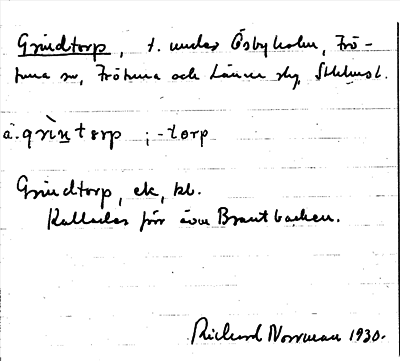 Grindtorp, t. under Össbyholm, Frö-
tuna sn, Frötuna och Länna skg, Sthlmsl.
ä. grìntorp ; -torp
Grindtorp, ek, kb.
Kallades förr även Brantbacken.
Richard Norrman 1930.